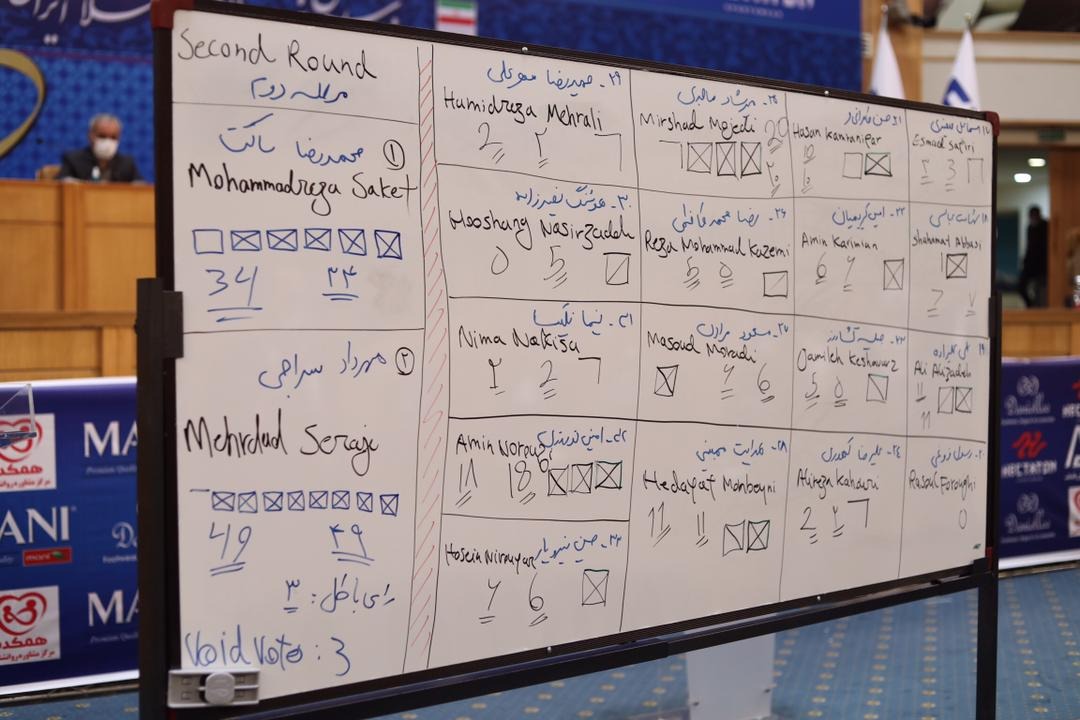 Second Round
مرحله دوم
① محمدرضا ساکت
Mohammadreza Saket
34 ۳۴
② مهرداد سراجی
Mehrdad Seraji
49 ۴۹
رای باطل: ۳
Void Vote: 3
۲۹- حمیدرضا مهرعلی
Hamidreza Mehrali
2 ۲
۳۰- هوشنگ نصیرزاده
Hooshang Nasirzadeh
۵ 5
۳۱- نیما نکیسا
Nima Nakisa
۲ 2
۳۲- امین نوروزی
Amin Norouzi
۱۱ 18
Hosein Nirouyar
۶ 6
۲۵- میرشاد ماجدی
Mirshad Majedi
20
۲۰
۲۶- رضا محمدکاظمی
Reza Mohammad Kazemi
5 ۵
۲۷- مسعود مرادی
Masoud Moradi
۶ 6
۲۸- هدایت ممبینی
Hedayat Monbeyni
11 ۱۱
۲۱- حسن کامرانی فر
Hasan Kamranifar
10
۱۰
۲۲- امین کریمیان
Amin Karimian
6 ۶
۲۳- جمیله کشاورز
Jamileh Keshavarz
5 ۵
۲۴- علیرضا کهوری
Alireza Kahouri
2 ۲
۱۷- اسماعیل صفیری
Esmaeil Safiri
۳ 3
۱۸- شهامت عباسی
Shahamat Abbasi
7 ۷
۱۹- علی علیزاده
Ali Alizadeh
11
۱۱
۲۰- رسول فروغی
Rasoul Foroughi
0
همکده
مرکز مشاوره و روانشناسی
MANI
Premium Quality
DANIELLIA
NECTATON